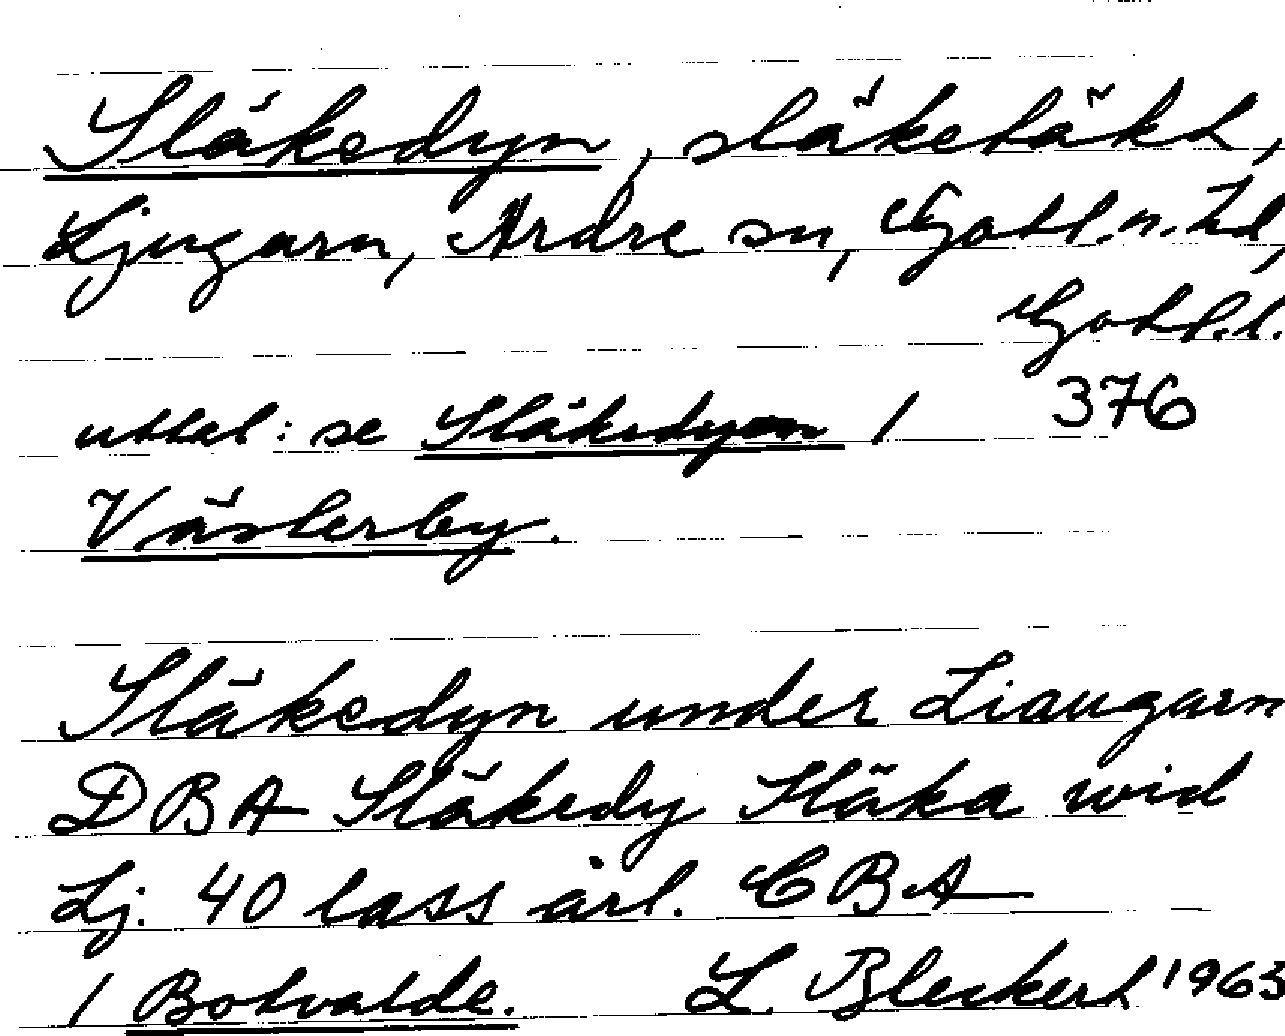 Släkedyn, släketäkt,
Ljugarn, Ardre sn, Gotl.n.hd,
Gotl.l.
376
uttal: se Släkedyn /
Västerby.
Släkedyn under Liaugarn
DBA Släkedy Släka wid
Lj. 40 lass årl. CBA
/ Botvalde. L. Bleckert 1963